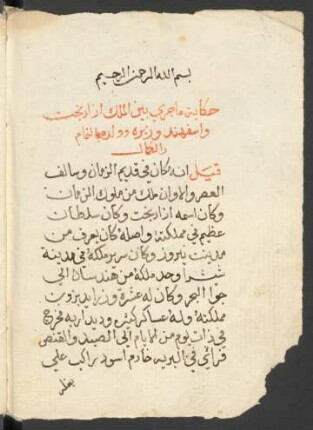 بسم الله الرحمن الرحيم
حكاية ما جري بين الملك ازادبخت
واسفهند وزيره وولده بالتمام
والكمال
قيل انه كان في قديم الزمان وسالف
العصر والاوان ملك من ملوك الزمان
وكان اسمه ازادبخت وكان سلطان
عظيم في مملكته واصله كان يعرف من
مدينت وكان سرير ملكه في مدينة
وحد ملكه من هندستان الي
البحر وكان له عشرة وزرا يدبروت
مملكته وله عساكر كثير فخرج
في ذات يوم من الايام الي الصيد والقنص
فراي في البريه خادم اسود راكب علي